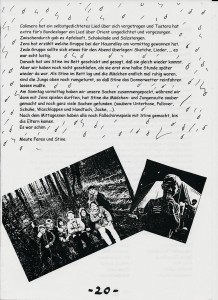 Cuhnera hat ein selbstgedichtetes Lied über sich vorgetragen und Tostara hat
extra für's Bundeslager ein Lied über Orient umgedichtet und vorgesungen.
Zwischendurch gab es Apfelsaft, Schokolade und Salzstangen.
Jens hat erzählt welche Gruppe bei der Hausralley am vormittag gewonnen hat.
Jede Gruppe sollte sich etwas für den Abend überlegen: Sketche, Lieder, ... es
war echt lustig.
Danach hat uns Stine ins Bett geschickt und gesagt, daß sie gleich wieder kommt.
Aber wir haben noch nicht geschlafen, als sie erst eine halbe Stunde später
wieder da war. Als Stine im Bett lag und die Mädchen endlich mal ruhig waren,
sind die Jungs oben noch rumgeturnt, so daß Stine das Donnerwetter reinfahren
lassen mußte.
Am Sonntag vormittag haben wir unsere Sachen zusammengepackt, während wir
dann mit Jens spielen durften, hat Stine die Mädchen- und Jungenseite sauber
gemacht und noch ganz viele Sachen gefunden. (saubere Unterhose, Pullover,
Schuhe, Waschlappen und Handtuch, Jacke, ...)
Nach dem Mittagessen haben alle noch Fallschirmspiele mit Stine gemacht, bis
die Eltern kamen.
Es war schön.
Meute Feros und Stine
-20-